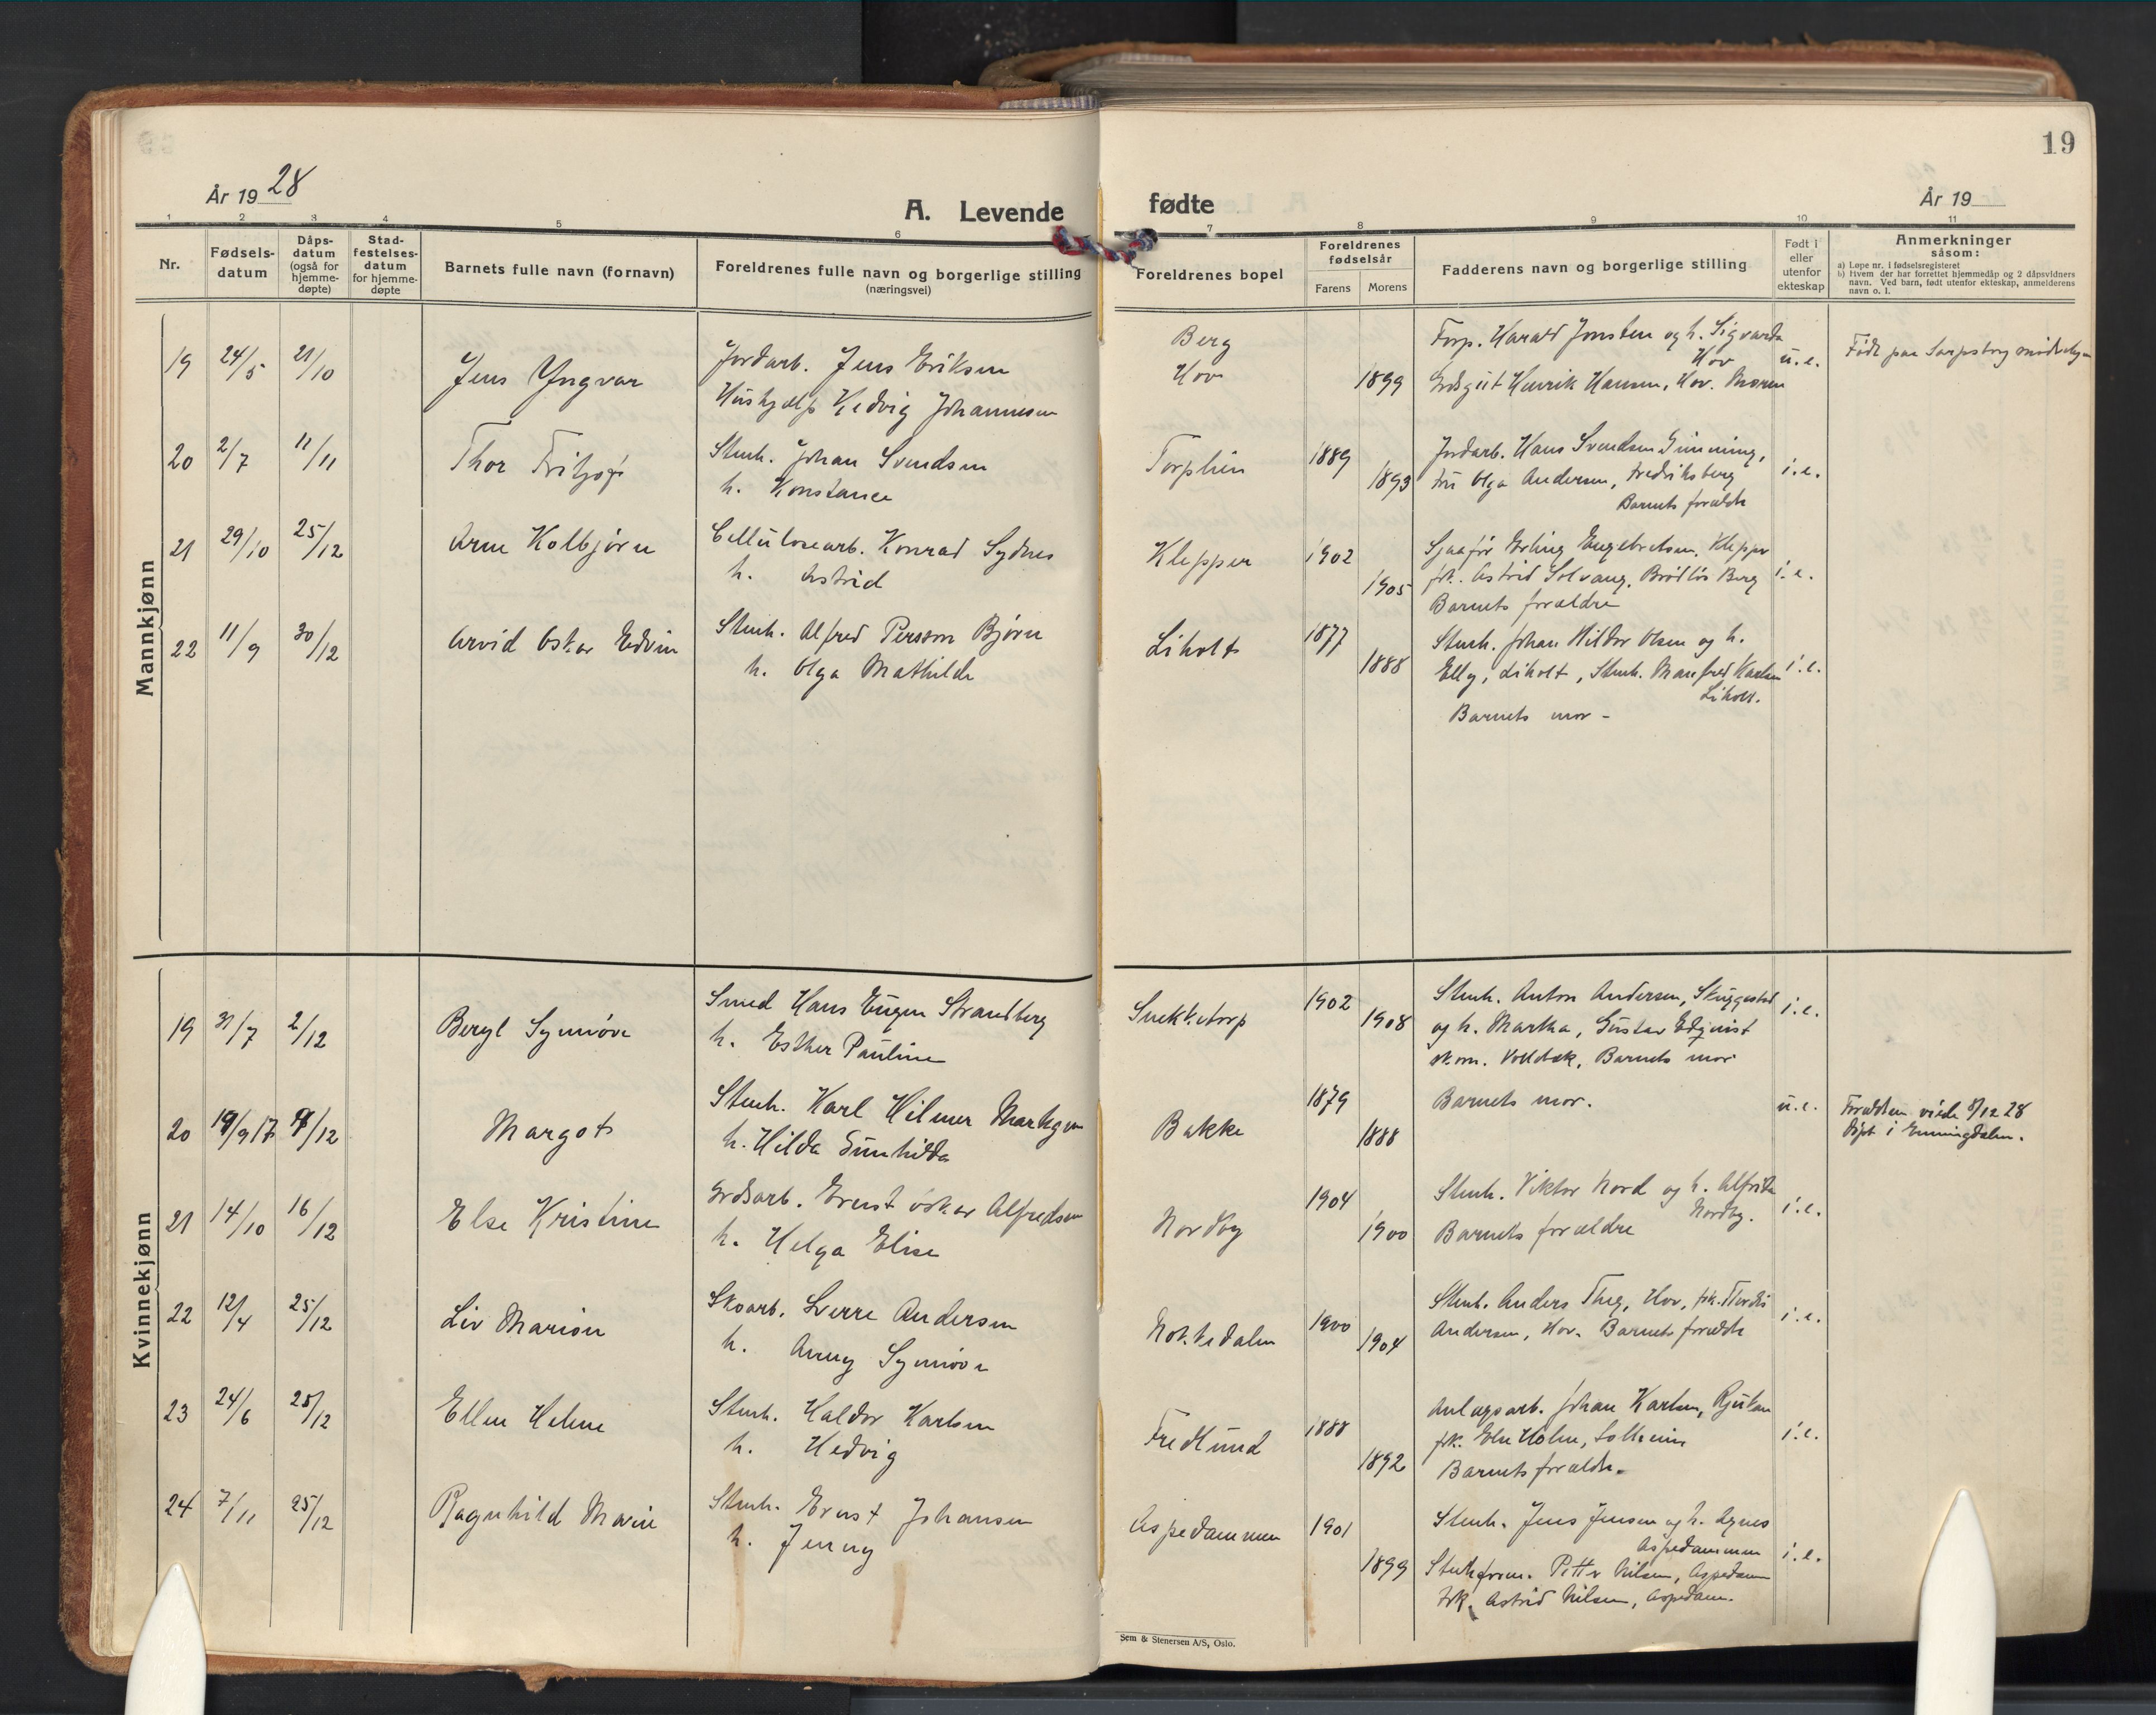 19
År 19 28
A. Levende fødte
År 19
1 2 3 4 5 6 7 8 9 10 11
Nr.
Fødsels-
datum
Dåps-
datum
(også for
hjemme-
døpte)
Stad-
festelses-
datum
for hjemme-
døpte
Barnets fulle navn (fornavn)
Foreldrenes fulle navn og borgerlige stilling
(næringsvei)
Foreldrenes bopel
Foreldrenes
fødselsår
Farens Morens
Fadderens navn og borgerlige stilling
Født i
eller
utenfor
ekteskap
Anmerkninger
såsom:
a) Løpe nr. i fødselsregisteret
b) Hvem der har forrettet hjemmedåp og 2 dåpsvidners
navn. Ved barn, født utenfor ekteskap, anmelderens
navn o. l.
Mannkjønn
19 24/5 21/10
Jens Yngvar
Jordarb. Jens Eriksen
Hushjælp Hedvig Johannesen
Berg
Hov
1899
Forp. Harald Jonsten og h. Sigvarda
Hov
Henrik Hansen, Hov. Moren
u.e.
Født paa Sarpsborg
20 2/7 11/11
Thor Fritjof
Stenh. Johan Svendsen
h. Konstance
Torplien
1889
1893
Jordarb. Hans Svendsen
fru Olga Andersen, Fredriksberg
Barnets foreldre
i.e.
21 29/10 25/12
Arne Kolbjørn
Cellulosearb. Konrad Sydnes
h. Astrid
Klepper
1902
1905
Erling Engebretsen, Klepper
frk. Astrid Solvang, Berg
Barnets forældre
i.e.
22 11/9 30/12
Arvid Oskar Edvin
Stenh. Alfred Persson Bjørn
h. Olga Mathilde
Liholt
1877
1888
Stenh. Johan Hildor Olsen og h.
Elly, Liholt, Stenh. Manfred Karlsen
Liholt.
Barnets mor -
i.e.
Kvinnekjønn
19 31/7 2/12
Beryl Synnøve
Smed Hans Eugen Strandberg
h. Esther Pauline
Snekketorp
1902
1908
Stenh. Anton Andersen, Skuggestad
og h. Martha, Gustav Edquist
skom. Barnets mor
i.e.
20 19/9 17 9/12
Margot
Stenh. Karl Hilmer
h. Hilda Gunhilda
Bakke
1879
1888
Barnets mor.
u.e.
Foreldren viede 8/12 28
Døpt i Enningdalen.
21 14/10 16/12
Else Kristine
Ernst Oskar Alfredsen
h. Helga Elise
Nordby
1904
1900
Stenh. Viktor Nord og h. Alfrida
Nordby.
Barnets forældre
i.e.
22 12/4 25/12
Liv Marion
Skoarb. Sverre Andersen
h. Anny Synnøve
Nokkedalen
1900
1904
Stenh. Anders Theg, Hov, frk. Thordis
Andersen, Hov. Barnets foreldre
i.e.
23 24/6 25/12
Ellen Helene
Stenh. Haldor Karlsen
h. Hedvig
Fredlund
1888
1892
Anlægsarb. Johan Karlsen, Rjukan
frk. Else Holm, Solheim
Barnets forældre.
i.e.
24 7/11 25/12
Ragnhild Marie
Stenh. Ernst Johansen
h. Jenny
Aspedammen
1901
1899
Stenh. Jens Jensen og h. Agnes
Aspedammen
Stenhform. Petter Nilsen, Aspedam
frk. Astrid Nilsen, Aspedam.
i.e.
Sem & Stenersen A/S, Oslo.